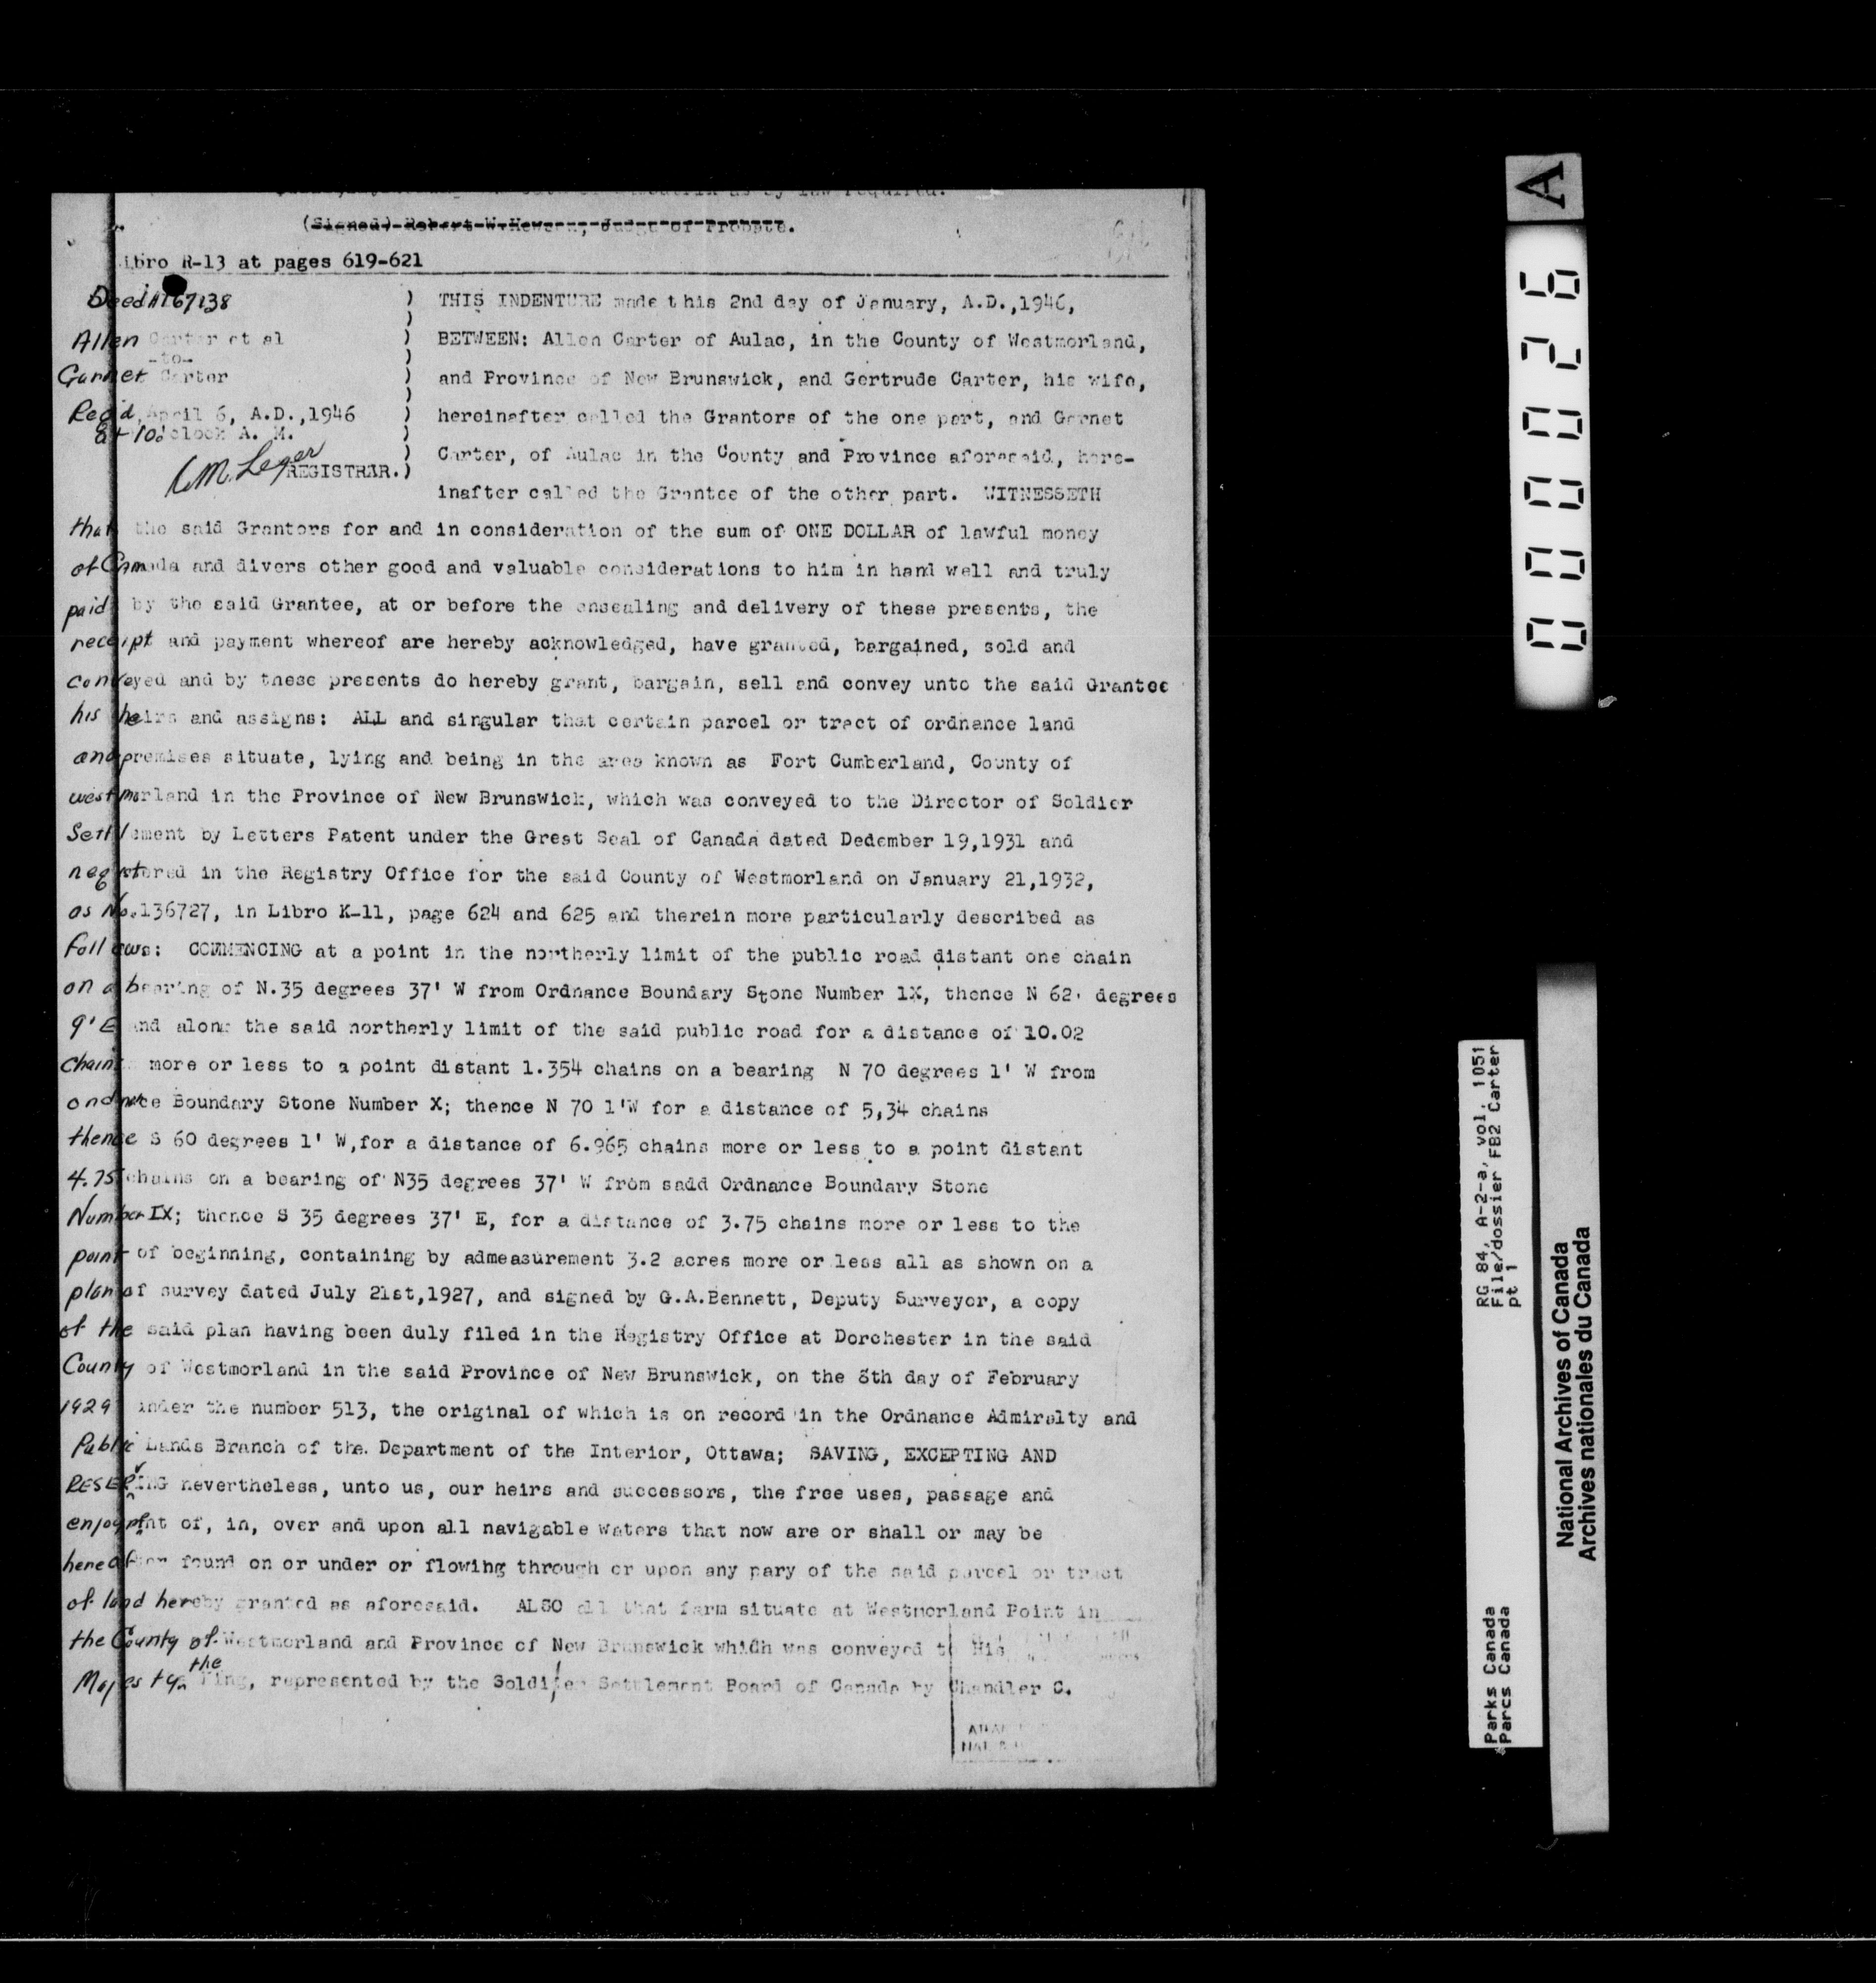 (Signed) Robert W. Hewson, Judge of Probate.
Libro R-13 at pages 619-621
Deed 167138
Allen Carter et al
-to-
Garnet Carter
Reg'd, April 6, A.D.,1946
at 10 o'clock A. M.
C.M. Leger
REGISTRAR.)
THIS INDENTURE made this 2nd day of January, A.D.,1946,
BETWEEN: Allen Carter of Aulac, in the County of Westmorland,
and Province of New Brunswick, and Gertrude Carter, his wife,
hereinafter called the Grantors of the one part, and Garnet
Carter, of Aulac in the County and Province aforesaid, here-
inafter called the Grantee of the other part. WITNESSETH
that the said Grantors for and in consideration of the sum of ONE DOLLAR of lawful money
of Canada and divers other good and valuable considerations to him in hand well and truly
paid by the said Grantee, at or before the ensealing and delivery of these presents, the
receipt and payment whereof are hereby acknowledged, have granted, bargained, sold and
conveyed and by these presents do hereby grant, bargain, sell and convey unto the said Grantee
his heirs and assigns: ALL and singular that certain parcel or tract of ordnance land
and premises situate, lying and being in the area known as Fort Cumberland, County of
westmorland in the Province of New Brunswick, which was conveyed to the Director of Soldier
Settlement by Letters Patent under the Grest Seal of Canada dated Dedember 19,1931 and
registered in the Registry Office for the said County of Westmorland on January 21,1932,
as No.136727, in Libro K-11, page 624 and 625 and therein more particularly described as
follows: COMMENCING at a point in the northerly limit of the public road distant one chain
on a bearing of N.35 degrees 37' W from Ordnance Boundary Stone Number 1X, thence N 62 degrees
9' E and along the said northerly limit of the said public road for a distance of 10.02
chains more or less to a point distant 1.354 chains on a bearing N 70 degrees 1' W from
ordnance Boundary Stone Number X; thence N 70 1'W for a distance of 5,34 chains
thence S 60 degrees 1' W,for a distance of 6.965 chains more or less to a point distant
4.75 chains on a bearing of N35 degrees 37' W from sadd Ordnance Boundary Stone
Number IX; thence S 35 degrees 37' E, for a distance of 3.75 chains more or less to the
point of beginning, containing by admeasurement 3.2 acres more or less all as shown on a
plan of survey dated July 21st,1927, and signed by G.A.Bennett, Deputy Surveyor, a copy
of the said plan having been duly filed in the Registry Office at Dorchester in the said
County of Westmorland in the said Province of New Brunswick, on the 8th day of February
1929 under the number 513, the original of which is on record in the Ordnance Admiralty and
Public Lands Branch of the Department of the Interior, Ottawa; SAVING, EXCEPTING AND
RESERVING nevertheless, unto us, our heirs and successors, the free uses, passage and
enjoymnt of, in, over and upon all navigable waters that now are or shall or may be
hereafter found on or under or flowing through or upon any pary of the said parcel or tract
of land hereby granted as aforesaid. ALSO all that farm situate at Westmorland Point in
the County of Westmorland and Province of New Brunswick which was conveyed to His
Majesty the King, represented by the Soldier Settlement Board of Canada by Chandler C.
A
000026
RG 84, A-2-a, vol. 1051
File/dossier FB2 Carter
pt 1
Parks Canada
Parcs Canada
National Archives of Canada
Archives nationales du Canada